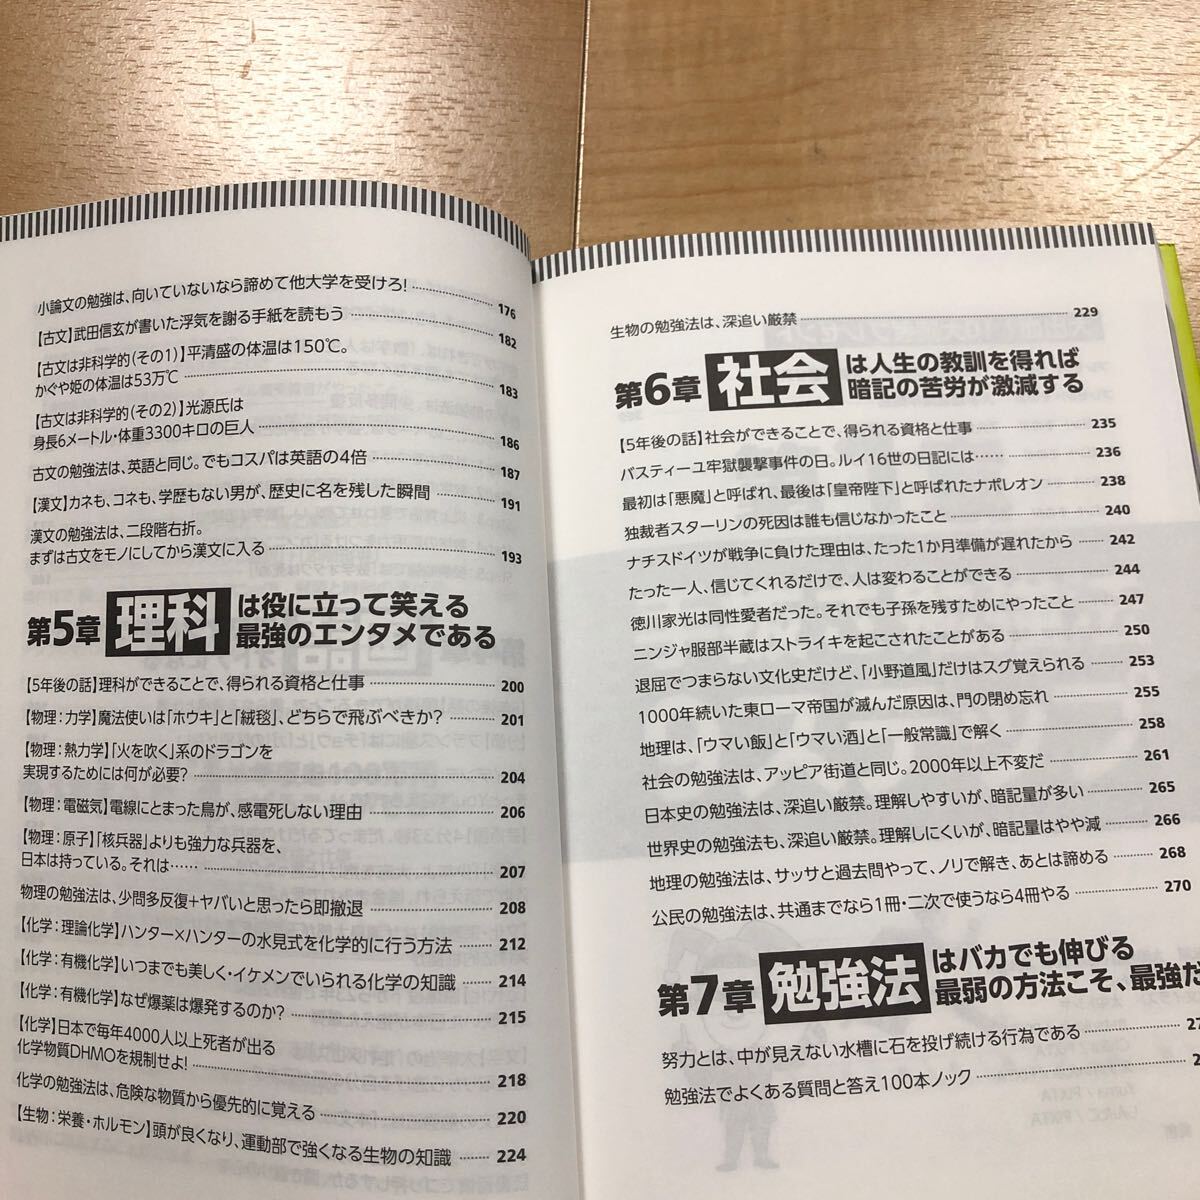 小論文の勉強は、向いていないなら諦めて他大学を受けろ! 176
【古文】武田信玄が書いた浮気を謝る手紙を読もう 182
【古文は非科学的(その1)】平清盛の体温は150℃。
かぐや姫の体温は53万℃ 183
【古文は非科学的(その2)】光源氏は
身長6メートル・体重3300キロの巨人 186
古文の勉強法は、英語と同じ。でもコスパは英語の4倍 187
【漢文】カネも、コネも、学歴もない男が、歴史に名を残した瞬間 191
漢文の勉強法は、二段階右折。
まずは古文をモノにしてから漢文に入る 193
第5章 理科 は役に立って笑える
最強のエンタメである
【5年後の話】理科ができることで、得られる資格と仕事 200
【物理:力学】魔法使いは「ホウキ」と「絨毯」、どちらで飛ぶべきか? 201
【物理:熱力学】「火を吹く」系のドラゴンを
実現するためには何が必要? 204
【物理:電磁気】電線にとまった鳥が、感電死しない理由 206
【物理:原子】「核兵器」よりも強力な兵器を、
日本は持っている。それは…… 207
物理の勉強法は、少問多反復+ヤバいと思ったら即撤退 208
【化学:理論化学】ハンター×ハンターの水見式を化学的に行う方法 212
【化学:有機化学】いつまでも美しく・イケメンでいられる化学の知識 214
【化学:有機化学】なぜ爆薬は爆発するのか? 215
【化学】日本で毎年4000人以上死者が出る
化学物質DHMOを規制せよ! 218
化学の勉強法は、危険な物質から優先的に覚える 220
【生物:栄養・ホルモン】頭が良くなり、運動部で強くなる生物の知識 224
生物の勉強法は、深追い厳禁 229
第6章 社会 は人生の教訓を得れば
暗記の苦労が激減する
【5年後の話】社会ができることで、得られる資格と仕事 235
バスティーユ牢獄襲撃事件の日。ルイ16世の日記には…… 236
最初は「悪魔」と呼ばれ、最後は「皇帝陛下」と呼ばれたナポレオン 238
独裁者スターリンの死因は誰も信じなかったこと 240
ナチスドイツが戦争に負けた理由は、たった1か月準備が遅れたから 242
たった一人、信じてくれるだけで、人は変わることができる 244
徳川家光は同性愛者だった。それでも子孫を残すためにやったこと 247
ニンジャ服部半蔵はストライキを起こされたことがある 250
退屈でつまらない文化史だけど、「小野道風」だけはスグ覚えられる 253
1000年続いた東ローマ帝国が滅んだ原因は、門の閉め忘れ 255
地理は、「ウマい飯」と「ウマい酒」と「一般常識」で解く 258
社会の勉強法は、アッピア街道と同じ。2000年以上不変だ 261
日本史の勉強法は、深追い厳禁。理解しやすいが、暗記量が多い 265
世界史の勉強法も、深追い厳禁。理解しにくいが、暗記量はやや減 266
地理の勉強法は、サッサと過去問やって、ノリで解き、あとは諦める 268
公民の勉強法は、共通までなら1冊・二次で使うなら4冊やる 270
第7章 勉強法 はバカでも伸びる
最弱の方法こそ、最強だ
努力とは、中が見えない水槽に石を投げ続ける行為である 27
勉強法でよくある質問と答え100本ノック 2